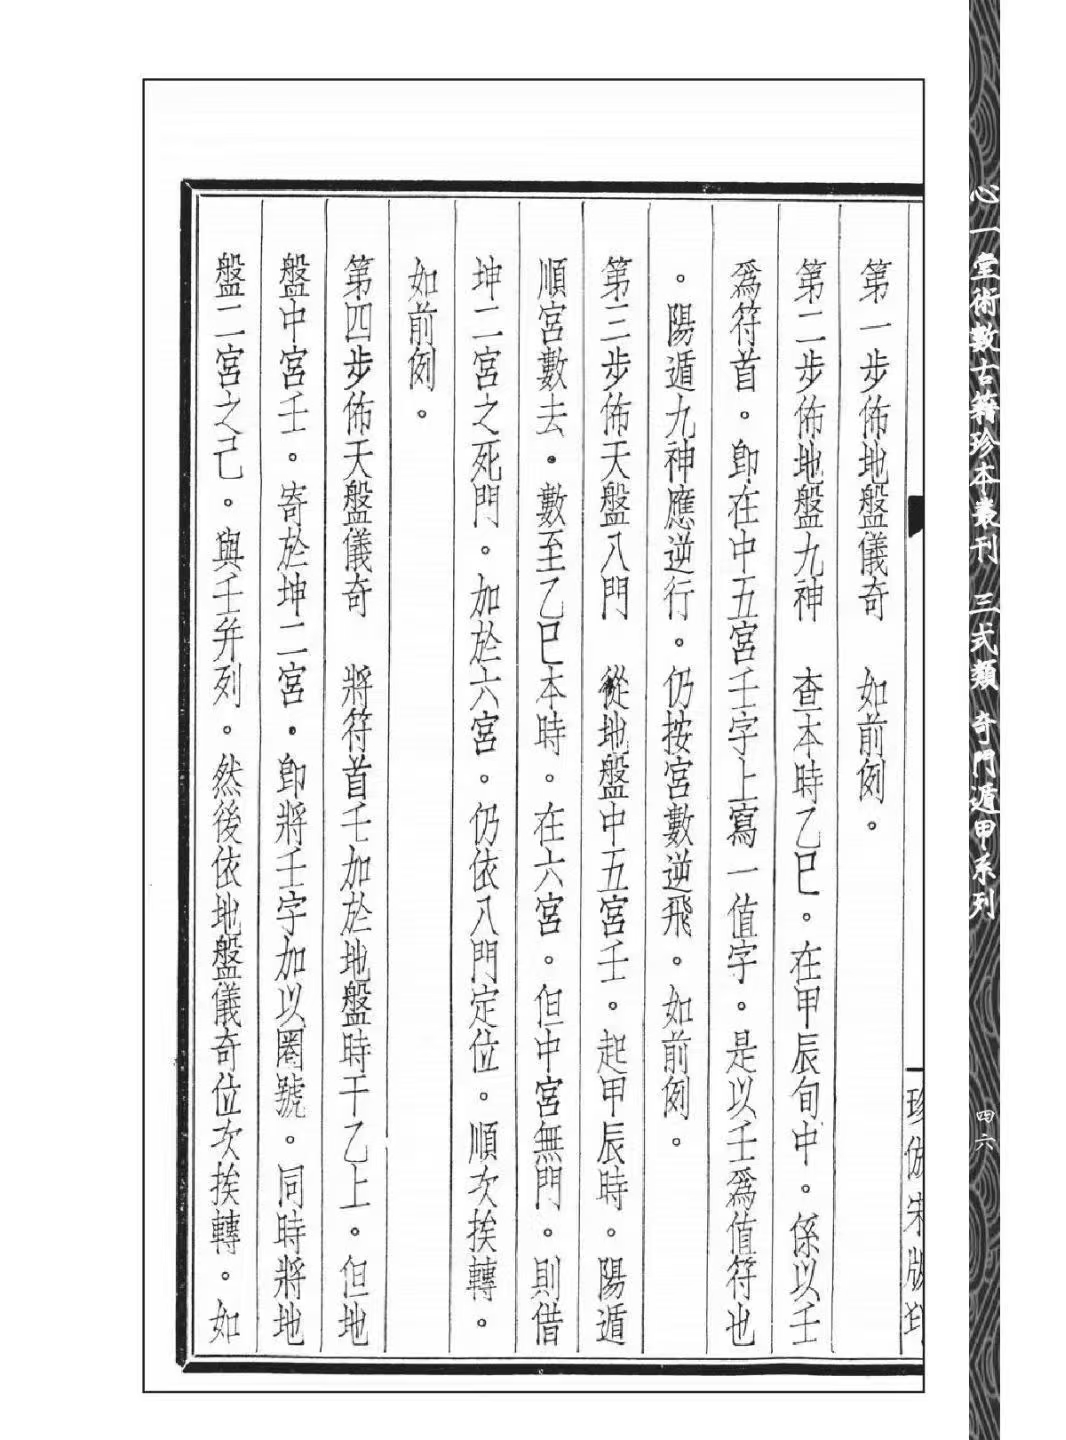 心一堂術數古籍珍本叢刊　三式類　奇門遁甲系列
四六
第一步佈地盤儀奇　如前例。
第二步佈地盤九神　查本時乙巳。在甲辰旬中。係以壬
爲符首。卽在中五宮壬字上寫一值字。是以壬爲值符也
。陽遁九神應逆行。仍按宮數逆飛。如前例。
第三步佈天盤八門　從地盤中五宮壬。起甲辰時。陽遁
順宮數去。數至乙巳本時。在六宮。但中宮無門。則借
坤二宮之死門。加於六宮。仍依八門定位。順次挨轉。
如前例。
第四步佈天盤儀奇　將符首壬加於地盤時干乙上。但地
盤中宮壬。寄於坤二宮。卽將壬字加以圈號。同時將地
盤二宮之己。與壬幷列。然後依地盤儀奇位次挨轉。如